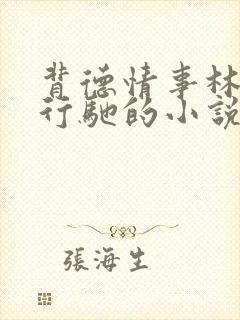 背德情事林
行馳的小說
張海生